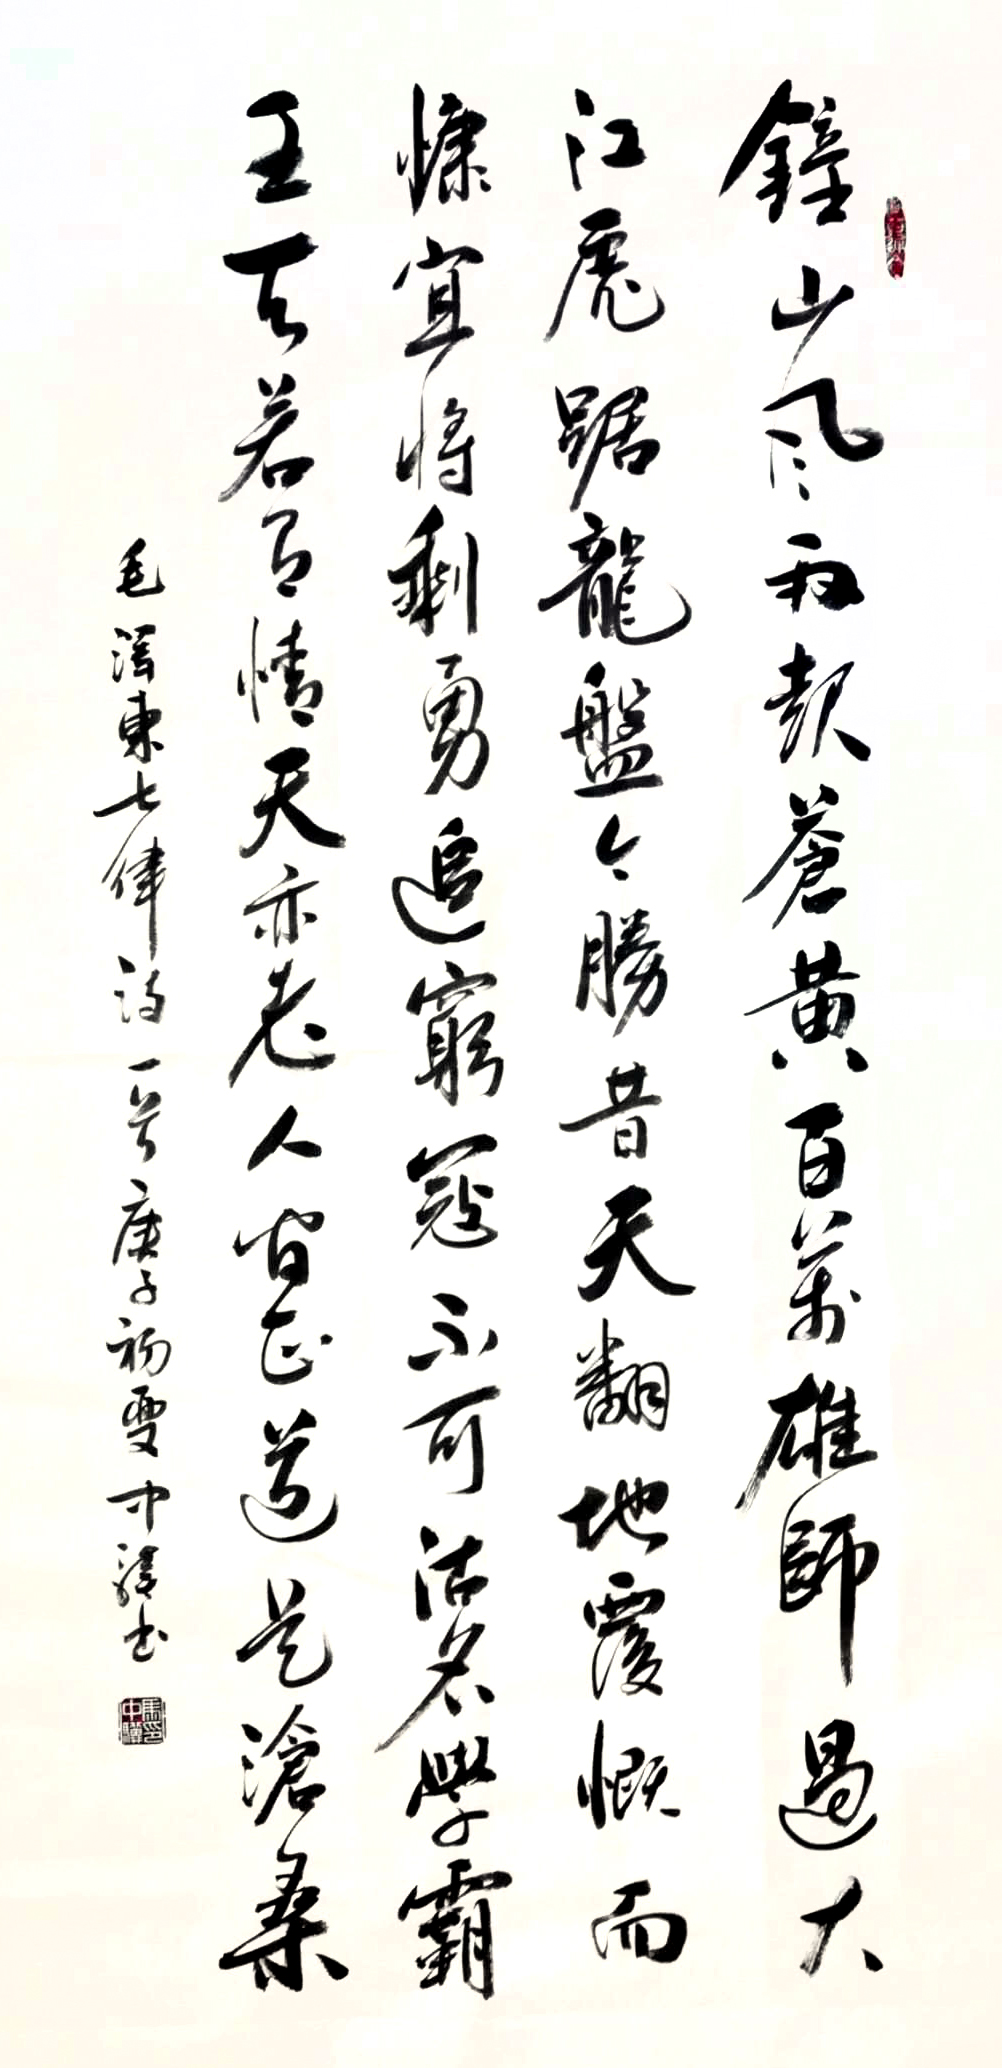 鐘山风雨起蒼黄百萬雄師過大
江虎踞龍盤今勝昔天翻地覆慨而
慷宜将剩勇追窮寇不可沽名學霸
王天若有情天亦老人间正道是滄桑
毛澤東七律诗一首庚子初雪中驥书